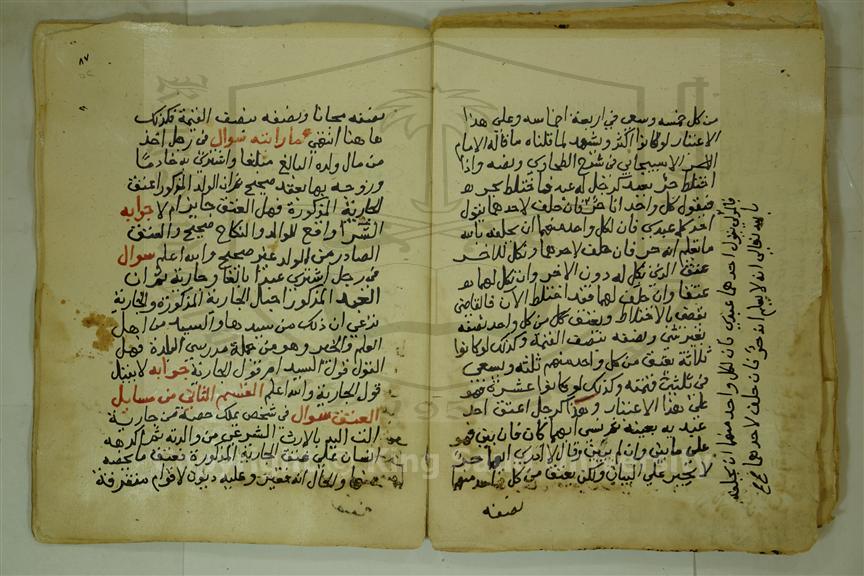 من كل خمسه وسعى في اربعة اخماسه وعلى هذا
الاعتبار لو كانوا اكثر ويشهد لما قلناه ما قاله الامام
الاسبيجابي في شرح الطحاوي ونصه واذا
اختلط حر بعبد كرجل له عبد فاختلط بحر
فيقول كل واحد انا حر فان حلف لاحدهما يقول
احدكما عبدي فان لكل واحد منهما ان يحلفه بالله
ما تعلم انه حر فان حلف لاحدهما ونكل للاخر
عتق الذي نكل له دون الاخر وان نكل لهما
عتقا وان حلف لهما فقد اختلط الامر فالقاضي
يقضي بالاختلاط ويعتق من كل واحد نصفه
بغير شي ونصفه بنصف القيمة وكذلك لو كانوا
ثلاثة يعتق من كل واحد منهم ثلثه ويسعى
في ثلثي قيمته وكذلك لو كانوا عشرة فهو
على هذا الاعتبار وهذا كرجل اعتق احد
عبديه بعينه ثم نسي ايهما كان فان بين فهو
على ما بين وان لم يبين وقال لا ادري ايهما حر
لا يجبر على البيان ولكن يعتق من كل واحد منهما
نصفه
٨٧
نصفه مجانا ونصفه بنصف القيمة فكذلك
هاهنا انتهى ما رايته سوال في رجل اخذ
من مال ولده البالغ مبلغا واشترى به خادمة
وزوجه بها بعقد صحيح ثم ان الولد المذكور اعتق
الجارية المذكورة فهل العتق جايز ام لا جوابه
الشرا واقع للوالد والنكاح صحيح والعتق
الصادر من الولد غير صحيح والله اعلم سوال
في رجل اشترى عبدا بالغا وجارية ثم ان
العبد المذكور احبل الجارية المذكورة والجارية
تدعي ان ذلك من سيدها والسيد من اهل
العلم والخير وهو من جملة مدرسي البلدة فهل
القول قول السيد ام قول الجارية جوابه لا يقبل
قول الجارية والله اعلم القسم الثاني من مسايل
العتق سوال في شخص ملك حصة من جارية
الت اليه بالارث الشرعي من والدته ثم اكرهه
انسان على عتق الجارية المذكورة فعتق ما يخصه
منها والحال انه معسر وعليه ديون لاقوام متفرقة